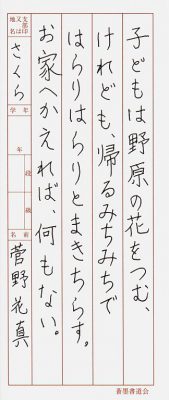 子どもは野原の花をつむ、
けれども、帰るみちみちで
はらりはらりとまきちらす。
お家へかえれば、何もない。
支部印又は地名
さくら
学年
年
段級
名前
菅野花真
蒼墨書道会